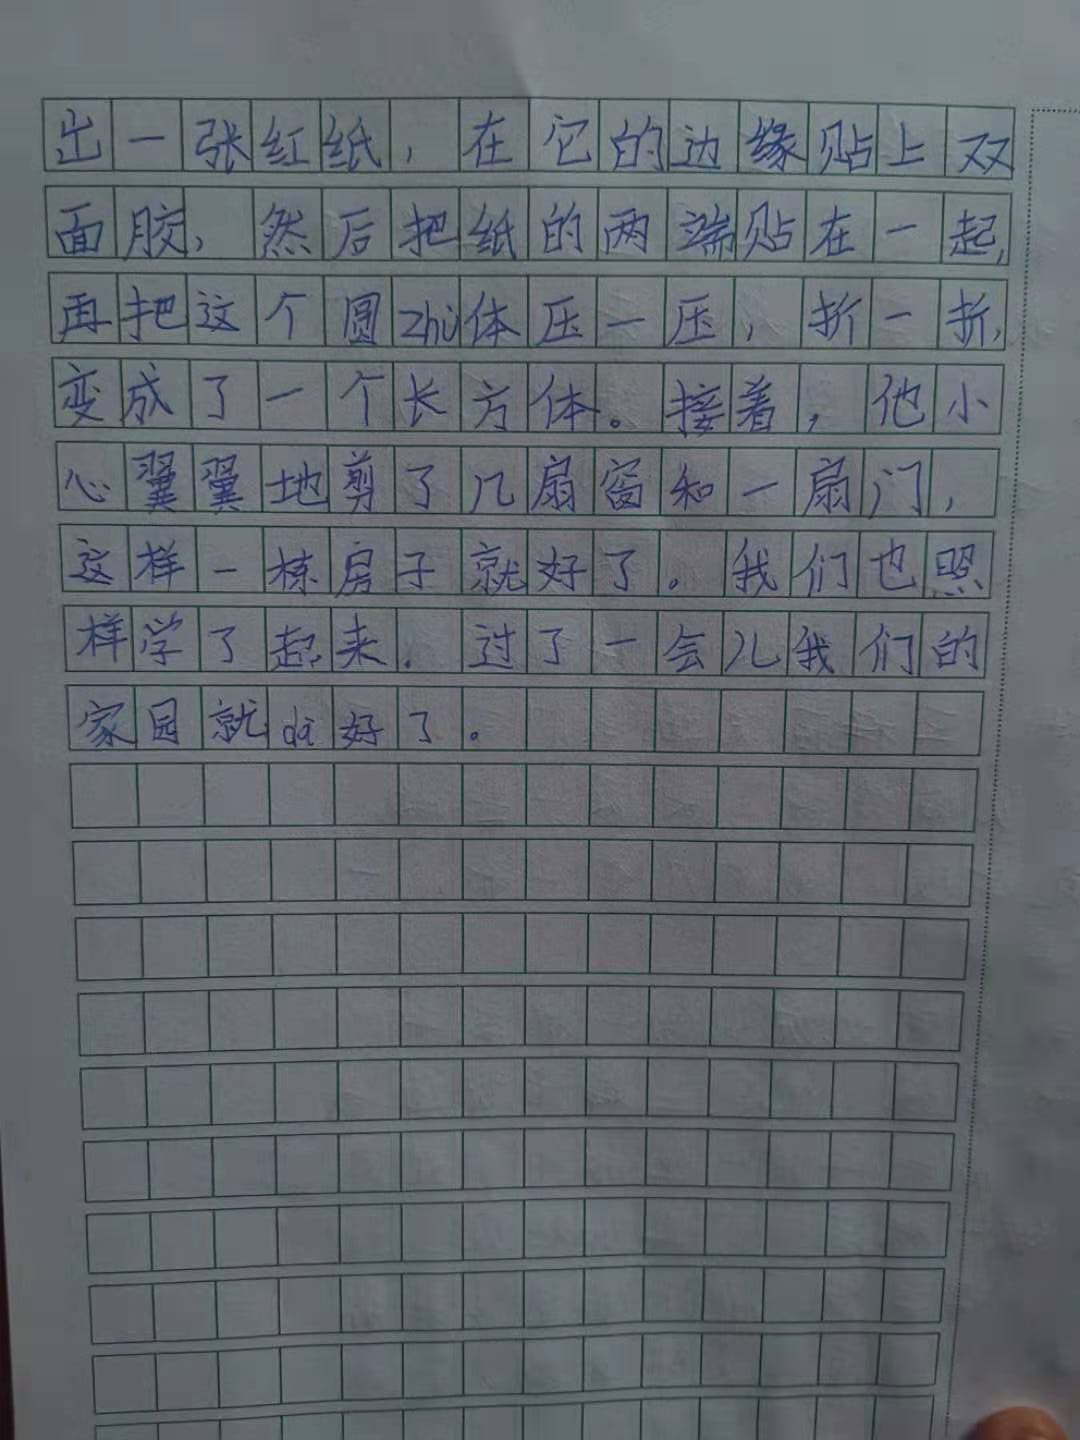 出一张红纸，在它的边缘贴上双
面胶，然后把纸的两端贴在一起，
再把这个圆zhù体压一压，折一折，
变成了一个长方体。接着，他小
心翼翼地剪了几扇窗和一扇门，
这样一栋房子就好了。我们也照
样学了起来．过了一会儿我们的
家园就dā好了。